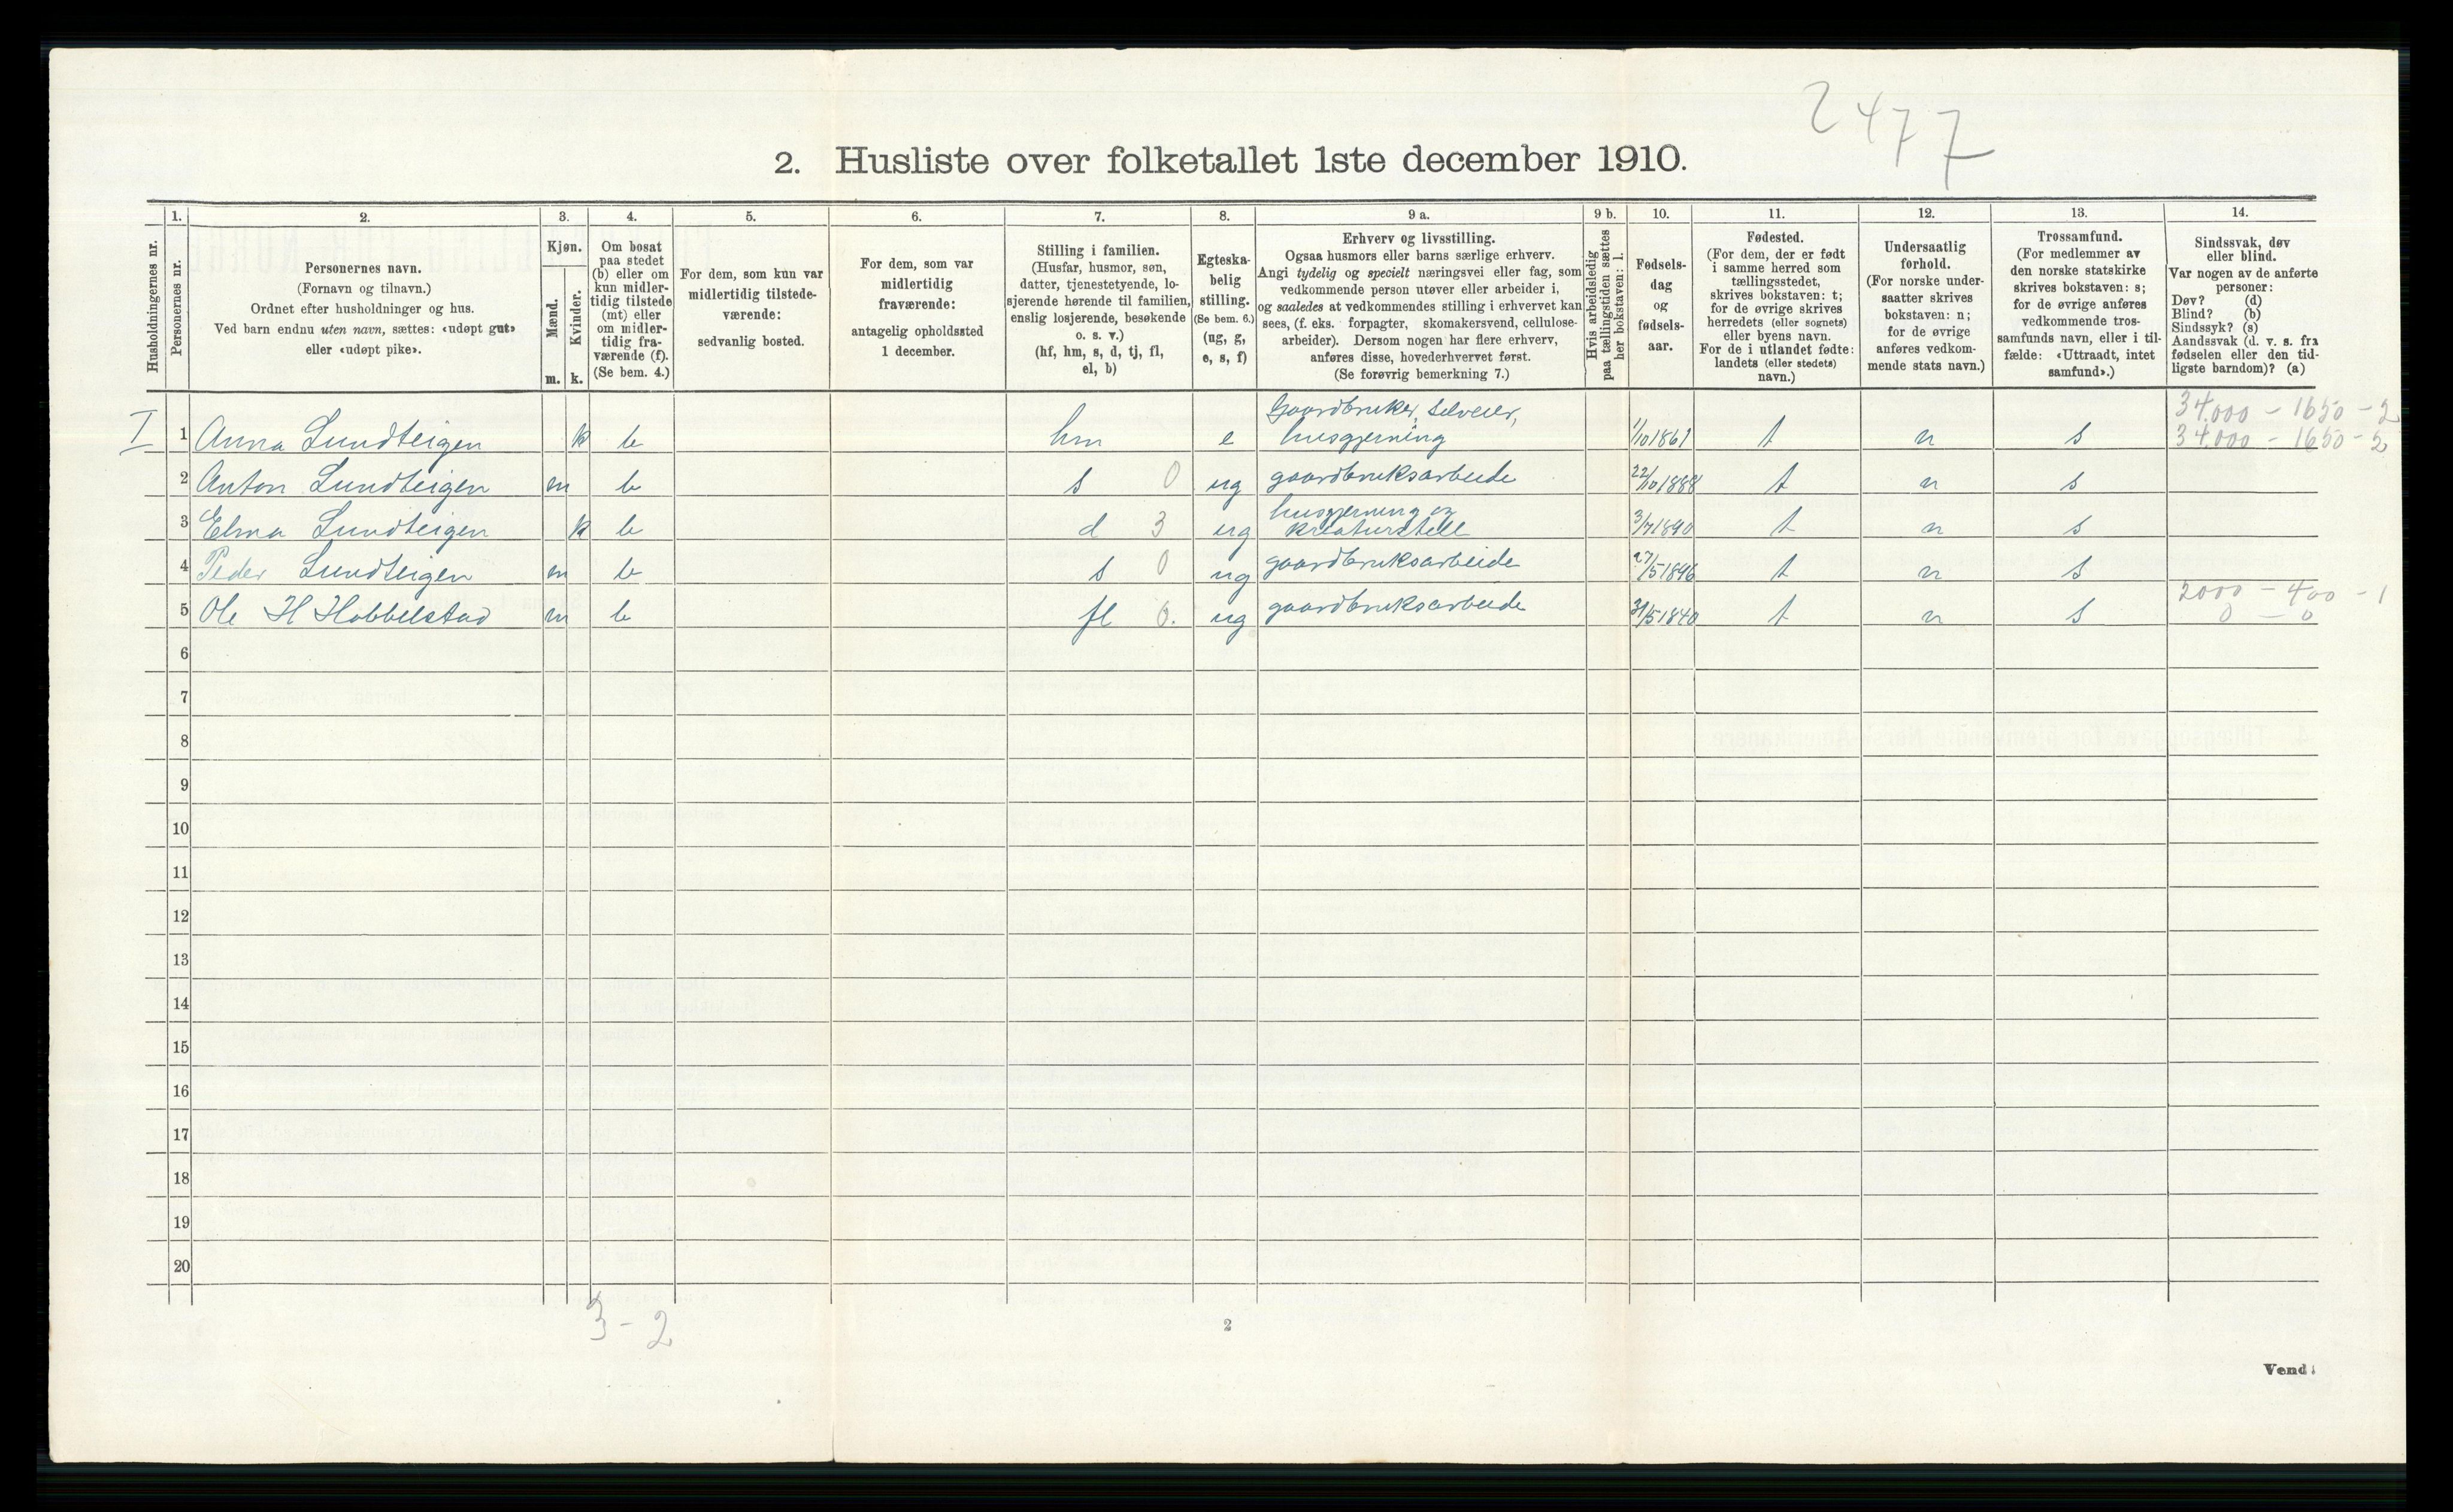 2477
2. Husliste over folketallet 1ste december 1910.
Husholdningernes nr.
1.
Personernes nr.
2.
Personernes navn.
(Fornavn og tilnavn.)
Ordnet efter husholdninger og hus.
Ved barn endnu uten navn, sættes: «udøpt gut»
eller «udøpt pike».
3.
Kjøn.
Mænd.
Kvinder.
m. k.
4.
Om bosat
paa stedet
(b) eller om
kun midler-
tidig tilstede
(mt) eller
om midler-
tidig fra-
værende (f).
(Se bem. 4.)
5.
For dem, som kun var
midlertidig tilstede-
værende:
sedvanlig bosted.
6.
For dem, som var
midlertidig
fraværende:
antagelig opholdssted
1 december.
7.
Stilling i familien.
(Husfar, husmor, søn,
datter, tjenestetyende, lo-
sjerende hørende til familien,
enslig losjerende, besøkende
o. s. v.)
(hf, hm, s, d, tj, fl,
el, b)
8.
Egteska-
belig
stilling.
(Se bem. 6.)
(ug, g,
e, s, f)
9 a.
Erhverv og livsstilling.
Ogsaa husmors eller barns særlige erhverv.
Angi tydelig og specielt næringsvei eller fag, som
vedkommende person utøver eller arbeider i,
og saaledes at vedkommendes stilling i erhvervet kan
sees, (f. eks. forpagter, skomakersvend, cellulose-
arbeider). Dersom nogen har flere erhverv,
anføres disse, hovederhvervet først.
(Se forøvrig bemerkning 7.)
9 b.
Hvis arbeidsledig
paa tællingstiden sættes
her bokstaven: l.
10.
Fødsels-
dag
og
fødsels-
aar.
11.
Fødested.
(For dem, der er født
i samme herred som
tællingsstedet,
skrives bokstaven: t;
for de øvrige skrives
herredets (eller sognets)
eller byens navn.
For de i utlandet fødte:
landets (eller stedets)
navn.)
12.
Undersaatlig
forhold.
(For norske under-
saatter skrives
bokstaven: n;
for de øvrige
anføres vedkom-
mende stats navn.)
13.
Trossamfund.
(For medlemmer av
den norske statskirke
skrives bokstaven: s;
for de øvrige anføres
vedkommende tros-
samfunds navn, eller i til-
fælde: «Uttraadt, intet
samfund».)
14.
Sindssvak, døv
eller blind.
Var nogen av de anførte
personer:
Døv? (d)
Blind? (b)
Sindssyk? (s)
Aandssvak (d. v. s. fra
fødselen eller den tid-
ligste barndom)? (a)
Gaardbruker, selveier, 34.000 - 1650 - 2
I 1 Anna Lundteigen k b hm e husgjerning 1/10 1861 t n s 34.000 - 1650 - 2
2 Anton Lundteigen m b s 0 ug gaardbruksarbeide 22/10 1888 t n s
husgjerning og
3 Elma Lundteigen k b d 3 ug kreaturstell 3/7 1890 t n s
4 Peder Lundteigen m b s 0 ug gaardbruksarbeide 27/5 1896 t n s
2000 - 400 - 1
5 Ole H Hobbelstad m b fl 0. ug gaardbruksarbeide 31/5 1840 t n s 0 - 0
6
7
8
9
10
11
12
13
14
15
16
17
18
19
20
3 - 2
2
Vend!